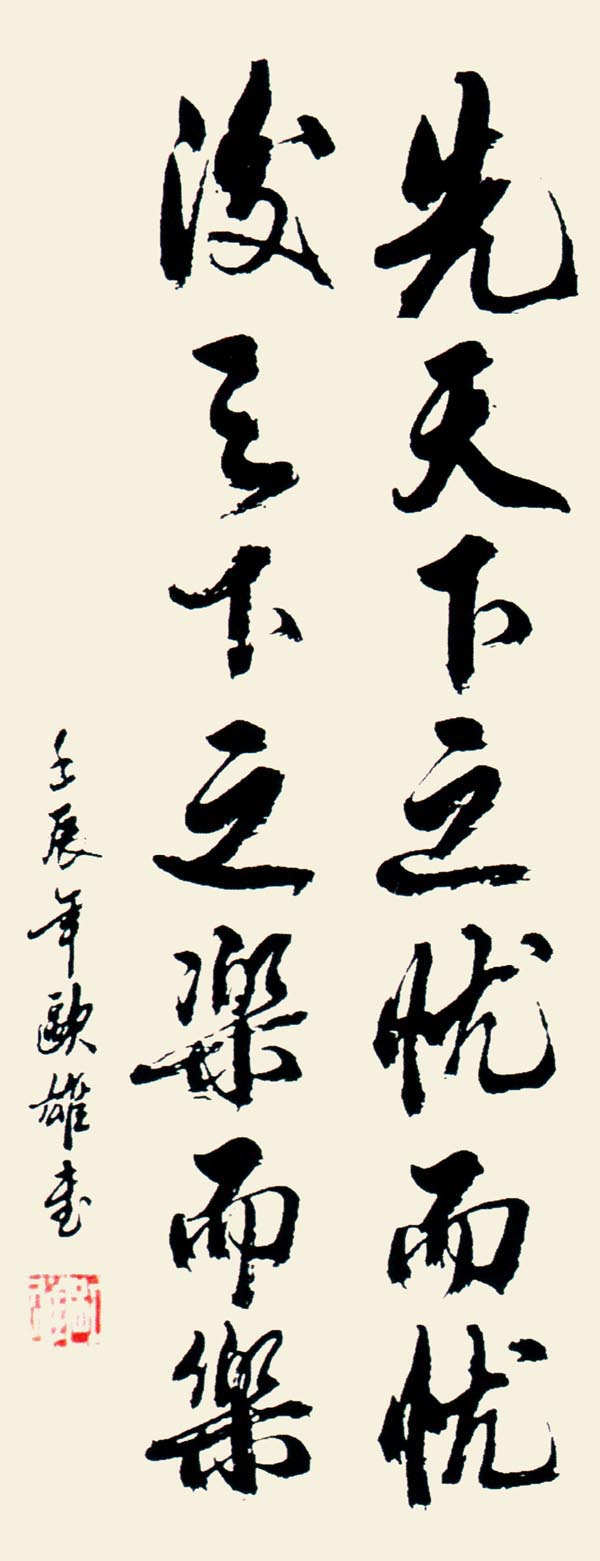 先天下之忧而忧
後天下之樂而樂
壬辰年歐雄書